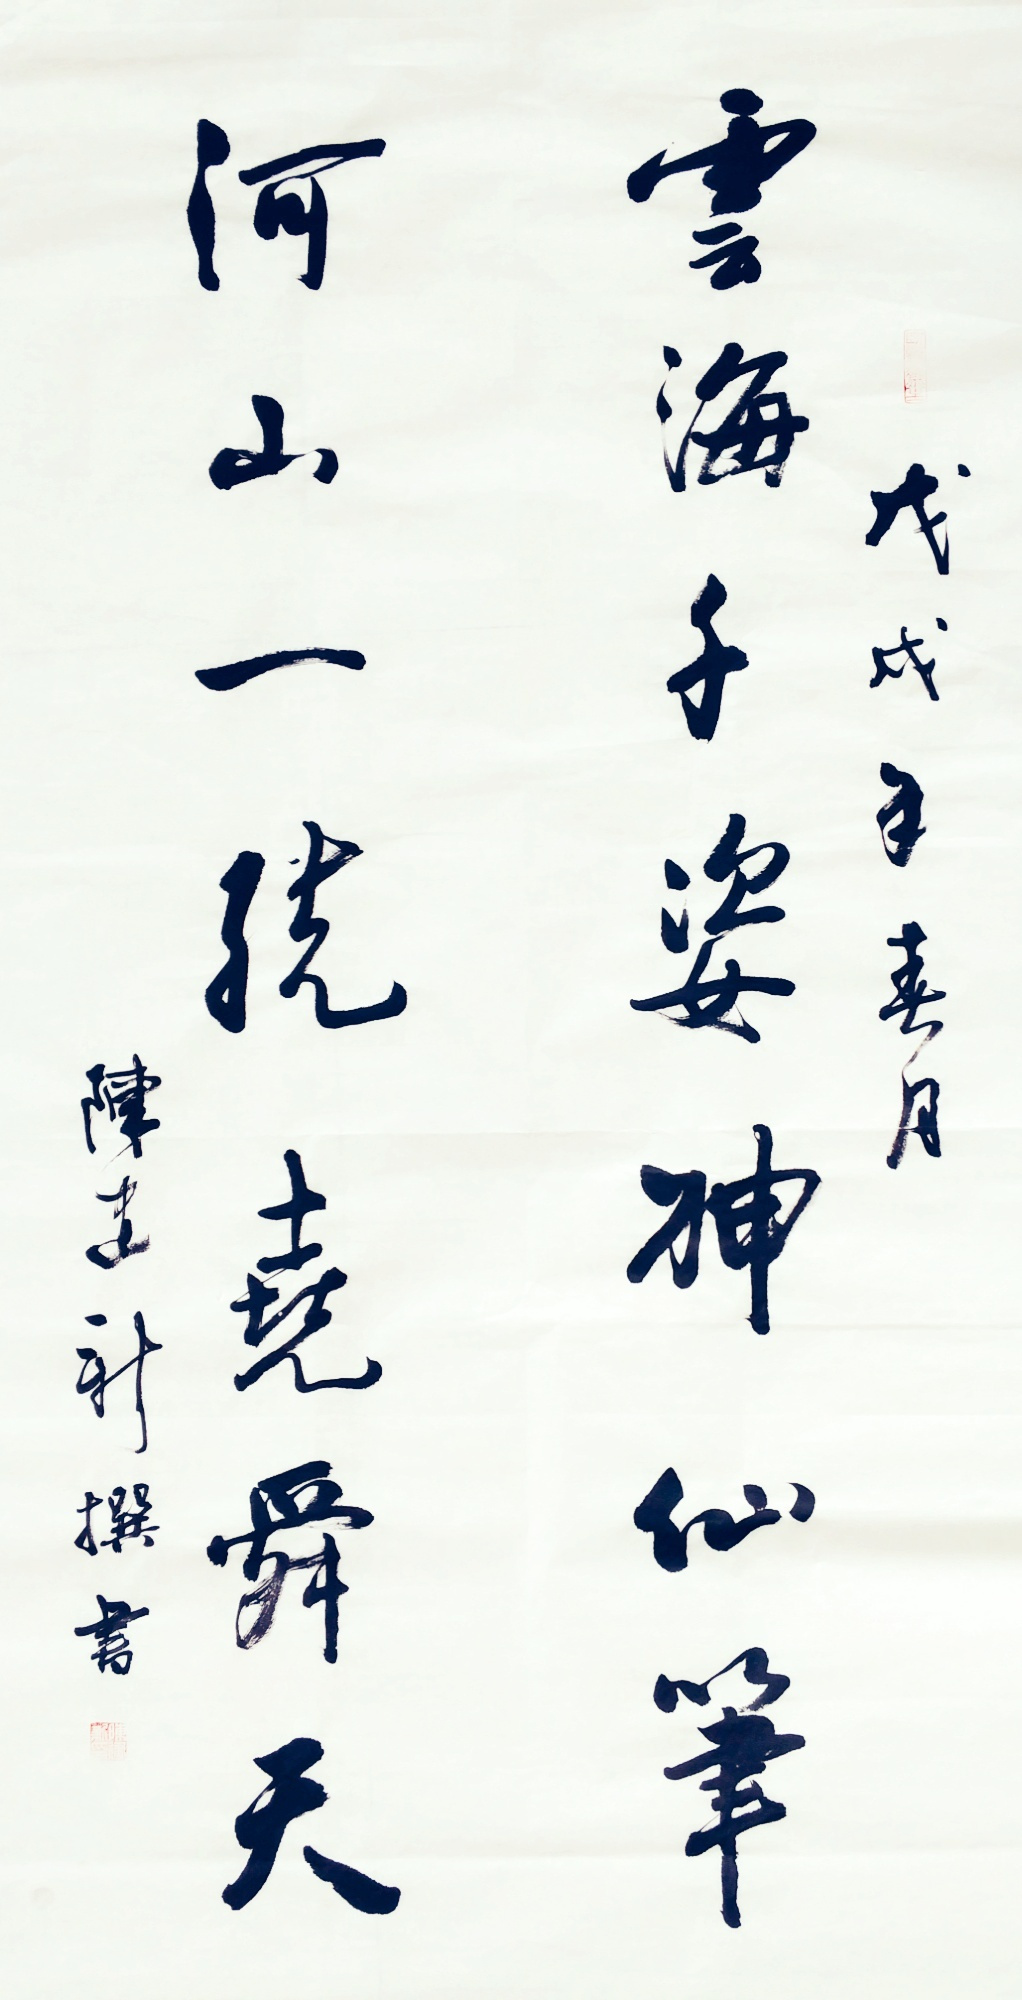 戊戌年春月
雲海千姿神仙筆
河山一統堯舜天
陳建新撰書